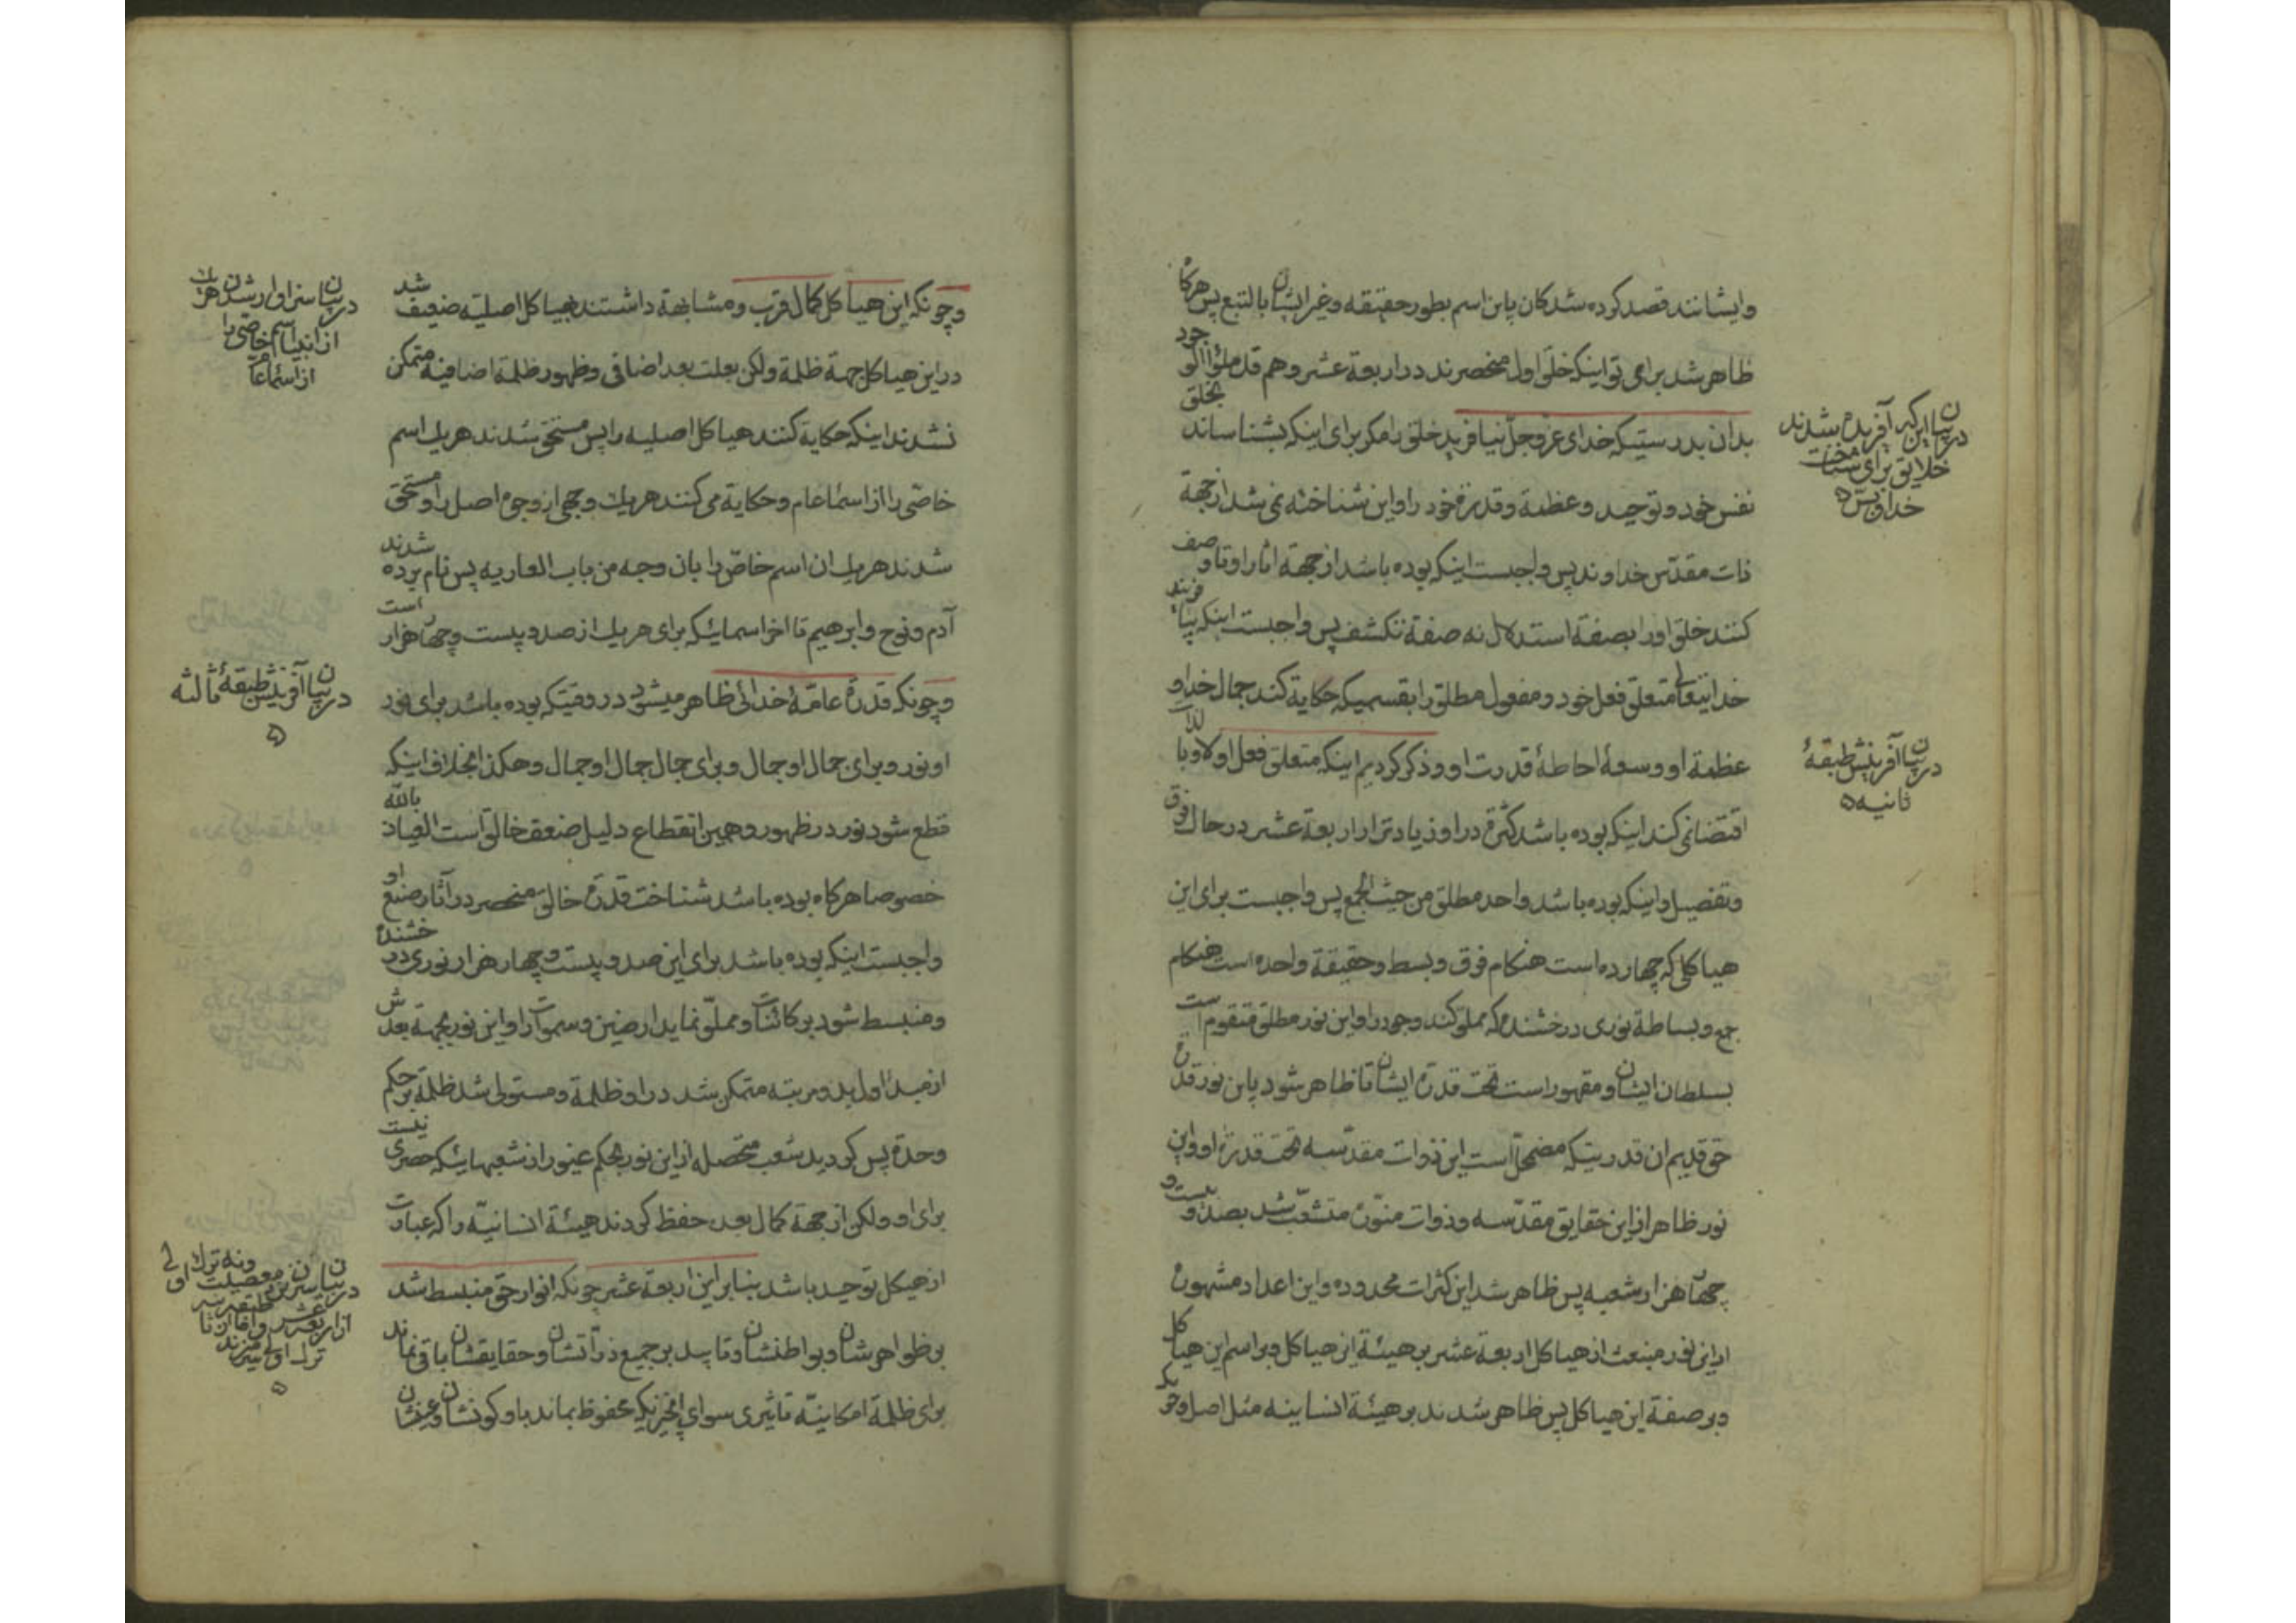 وایشانند قصد کرده شدکان باین اسم بطور حقیقه و غیر ایشان بالتبع پس هرکاه
ظاهر شد برای تو اینکه خلق اول منحصرند در اربعة عشر و هم قد ملؤا الوجود
بدان بدرستیکه خدای عزوجل نیافرید خلق را مکر برای اینکه بشناساند بخلق
نفس خود و توحید و عظمة و قدرة خود را و این شناخته نمی شد از جهة
ذات مقدس خداوند پس واجبست اینکه بوده باشد از جهة اثار او تا وصف
کنند خلق او را بصفة استدلال نه صفة تکشف پس واجبست اینکه بیافریند
خدایتعالی متعلق فعل خود و مفعول مطلق را بقسمیکه حکایة کند جمال خدا و
عظمة او و وسعۀ احاطۀ قدرت او و ذکر کردیم اینکه متعلق فعل اولا و بالذات
اقتضا نمی کند اینکه بوده باشد کثرة در او زیادتر از اربعة عشر در حال فرق
و تفصیل و اینکه بوده باشد واحد مطلق من حیث الجمع پس واجبست برای این
هیاکلی که چهارده است هنکام فوق و بسط و حقیقة واحده است هنکام
جمع و بساطة نوری درخشنده که مملو کند وجود را و این نور مطلق متقوم است
بسلطان ایشان و مقهور است تحت قدرة ایشان تا ظاهر شود باین نور قدرة
حق قدیم ان قدرتیکه مضمحل است این ذوات مقدسه تحت قدرة او و این
نور ظاهر از این حقایق مقدسه و ذوات منوره متشعب شد بصد و بیست و
چهار هزار شعبه پس ظاهر شد این کثرات محدوده و این اعداد مشهوره
از این نور منبعث از هیاکل اربعة عشر بر هیئة این هیاکل و بر اسم این هیاکل
و بر صفة این هیاکل پس ظاهر شدند بر هیئة انسانیه مثل اصل و
در بیان این که آفریده شدند
خلایق برای شناخت
خداوندش
در بیان آفرینش طبقۀ
ثانیه
و چونکه این هیاکل کمال قرب و مشابهة داشتند بهیاکل اصلیه ضعیف شد
در این هیاکل جهة ظلمة ولکن بعلت بعد اضافی و ظهور ظلمة اضافیه متمکن
نشدند اینکه حکایة کنند هیاکل اصلیه را پس مستحق شدند هر یک اسم
خاصی را از اسماء عام و حکایة می کنند هر یک وجهی از وجوه اصل را و مستحق
شدند هر یک ان اسم خاص را بان وجه من باب العاریه پس نام برده شدند
آدم و نوح و ابرهیم تا اخر اسمائیکه برای هر یک از صد و بیست و چهار هزار است
و چونکه قدرة عامۀ خدائی ظاهر میشود در وقتیکه بوده باشد برای نور
او نور و برای جمال او جمال و برای جمال جمال او جمال و هکذا بخلاف اینکه
قطع شود نور در ظهور و همین انقطاع دلیل ضعف خالق است العیاذ بالله
خصوصا هرکاه بوده باشد شناخت قدرة خالق منحصر در آثار صنع او
واجبست اینکه بوده باشد برای این صد و بیست و چهار هزار نوری درخشنده
و منبسط شود بر کائنات و مملو نماید ارضین و سموات را و این نور بجهة بعدش
از مبدا اول بدو مرتبه متمکن شد در او ظلمة و مستولی شد ظلمة بر حکم
وحدة پس کردید شعب متحصله از این نور بحکم غیور از شعبهائیکه حصری نیست
برای او ولکن از جهة کمال بعد حفظ کردند هیئة انسانیه را که عبارت
از هیکل توحید باشد بنابراین اربعة عشر چونکه انوار حق منبسط شد
بر ظواهرشان و بواطنشان و تابید بر جمیع ذراتشان و حقایقشان باقی نماند
برای ظلمة امکانیه تاثیری سوای انچیزیکه محفوظ بماند باو کونشان و عینشان
در بیان سزاوار شدن هر یک
از انبیا اسم خاصی را
از اسماء عام
در بیان آفرینش طبقۀ ثالثه